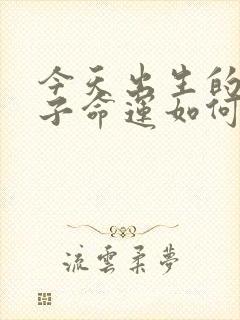 今天出生的
子命運如何
流雲柔夢